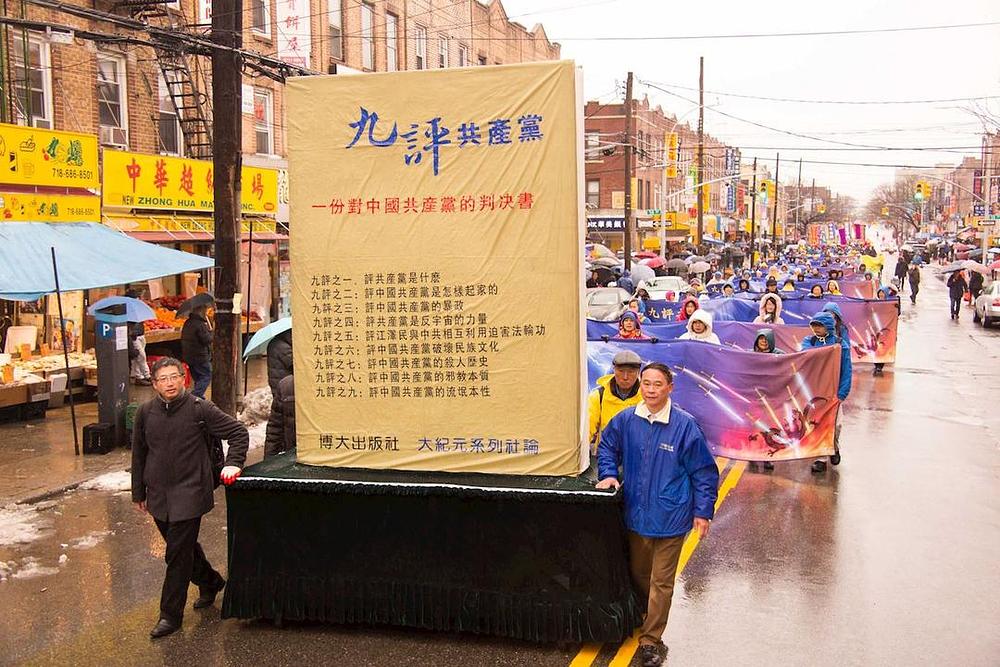 九評共產黨
一份對中國共產黨的判決書
九評之一：評共產黨是什麼
九評之二：評中國共產黨是怎樣起家的
九評之三：評中國共產黨的暴政
九評之四：評共產黨是反宇宙的力量
九評之五：評江澤民與中共相互利用迫害法輪功
九評之六：評中國共產黨破壞民族文化
九評之七：評中國共產黨的殺人歷史
九評之八：評中國共產黨的邪教本質
九評之九：評中國共產黨的流氓本性
博大出版社 大紀元系列社論
718-686-8501
中華超級
場
718-686-8501
NEW ZHONG HUA
INC.
P
九評